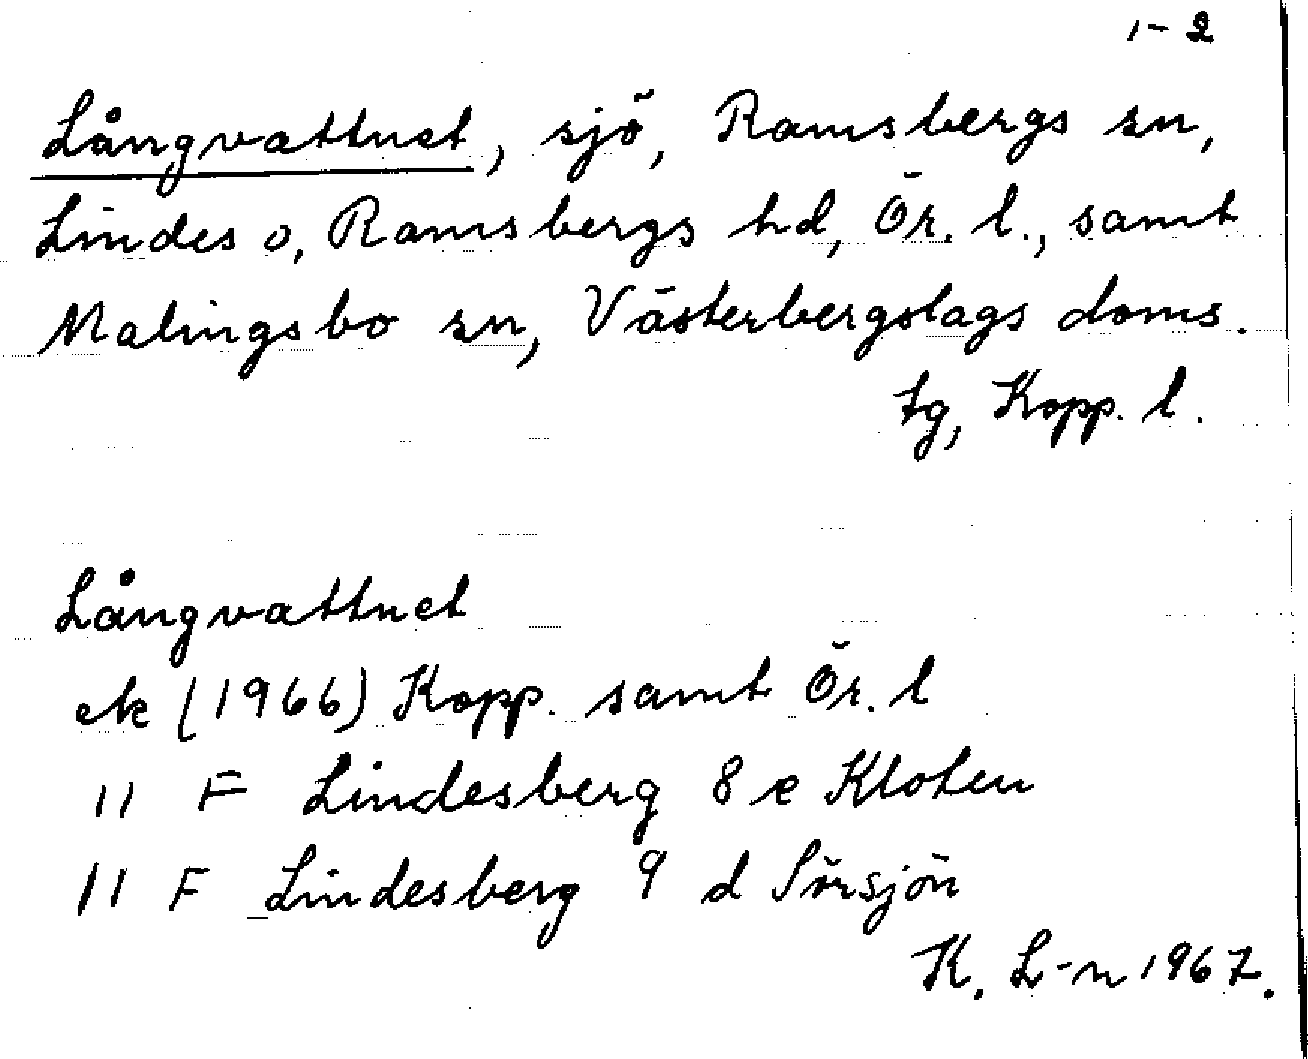 1-2
Långvattnet, sjö, Ramsbergs sn,
Lindes o. Ramsbergs hd, Ör. l., samt
Malingsbo sn, Västerbergslags doms.
tg, Kopp. l.
Långvattnet
ek (1966) Kopp. samt Ör. l
11 F Lindesberg 8 e Kloten
11 F Lindesberg 9 d Sörsjön
K. L-n 1967.